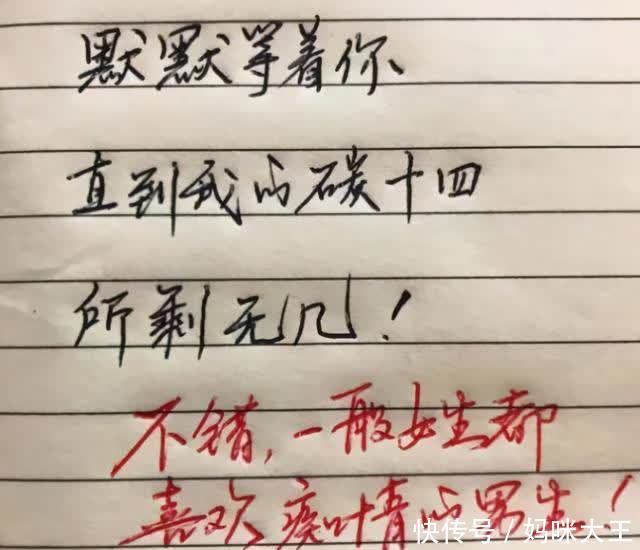 默默等着你、
直到我的碳十四
所剩无几！
不错，一般女生都
喜欢痴情的男生！
快传号／妈咪大王